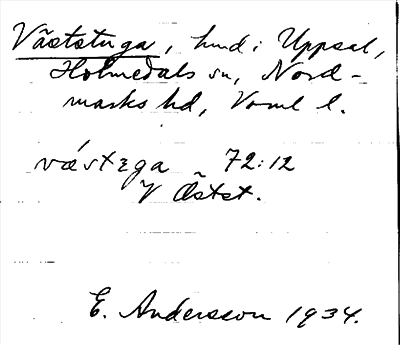 Väststuga, hmd i Uppsal,
Holmedals sn, Nord-
marks hd, Vrml l.
väst​ɛga 72:12
V Östst.
E. Andersson 1934.